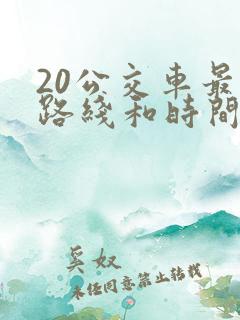 20公交車最
路綫和時間
奚奴
未任同意禁止转载